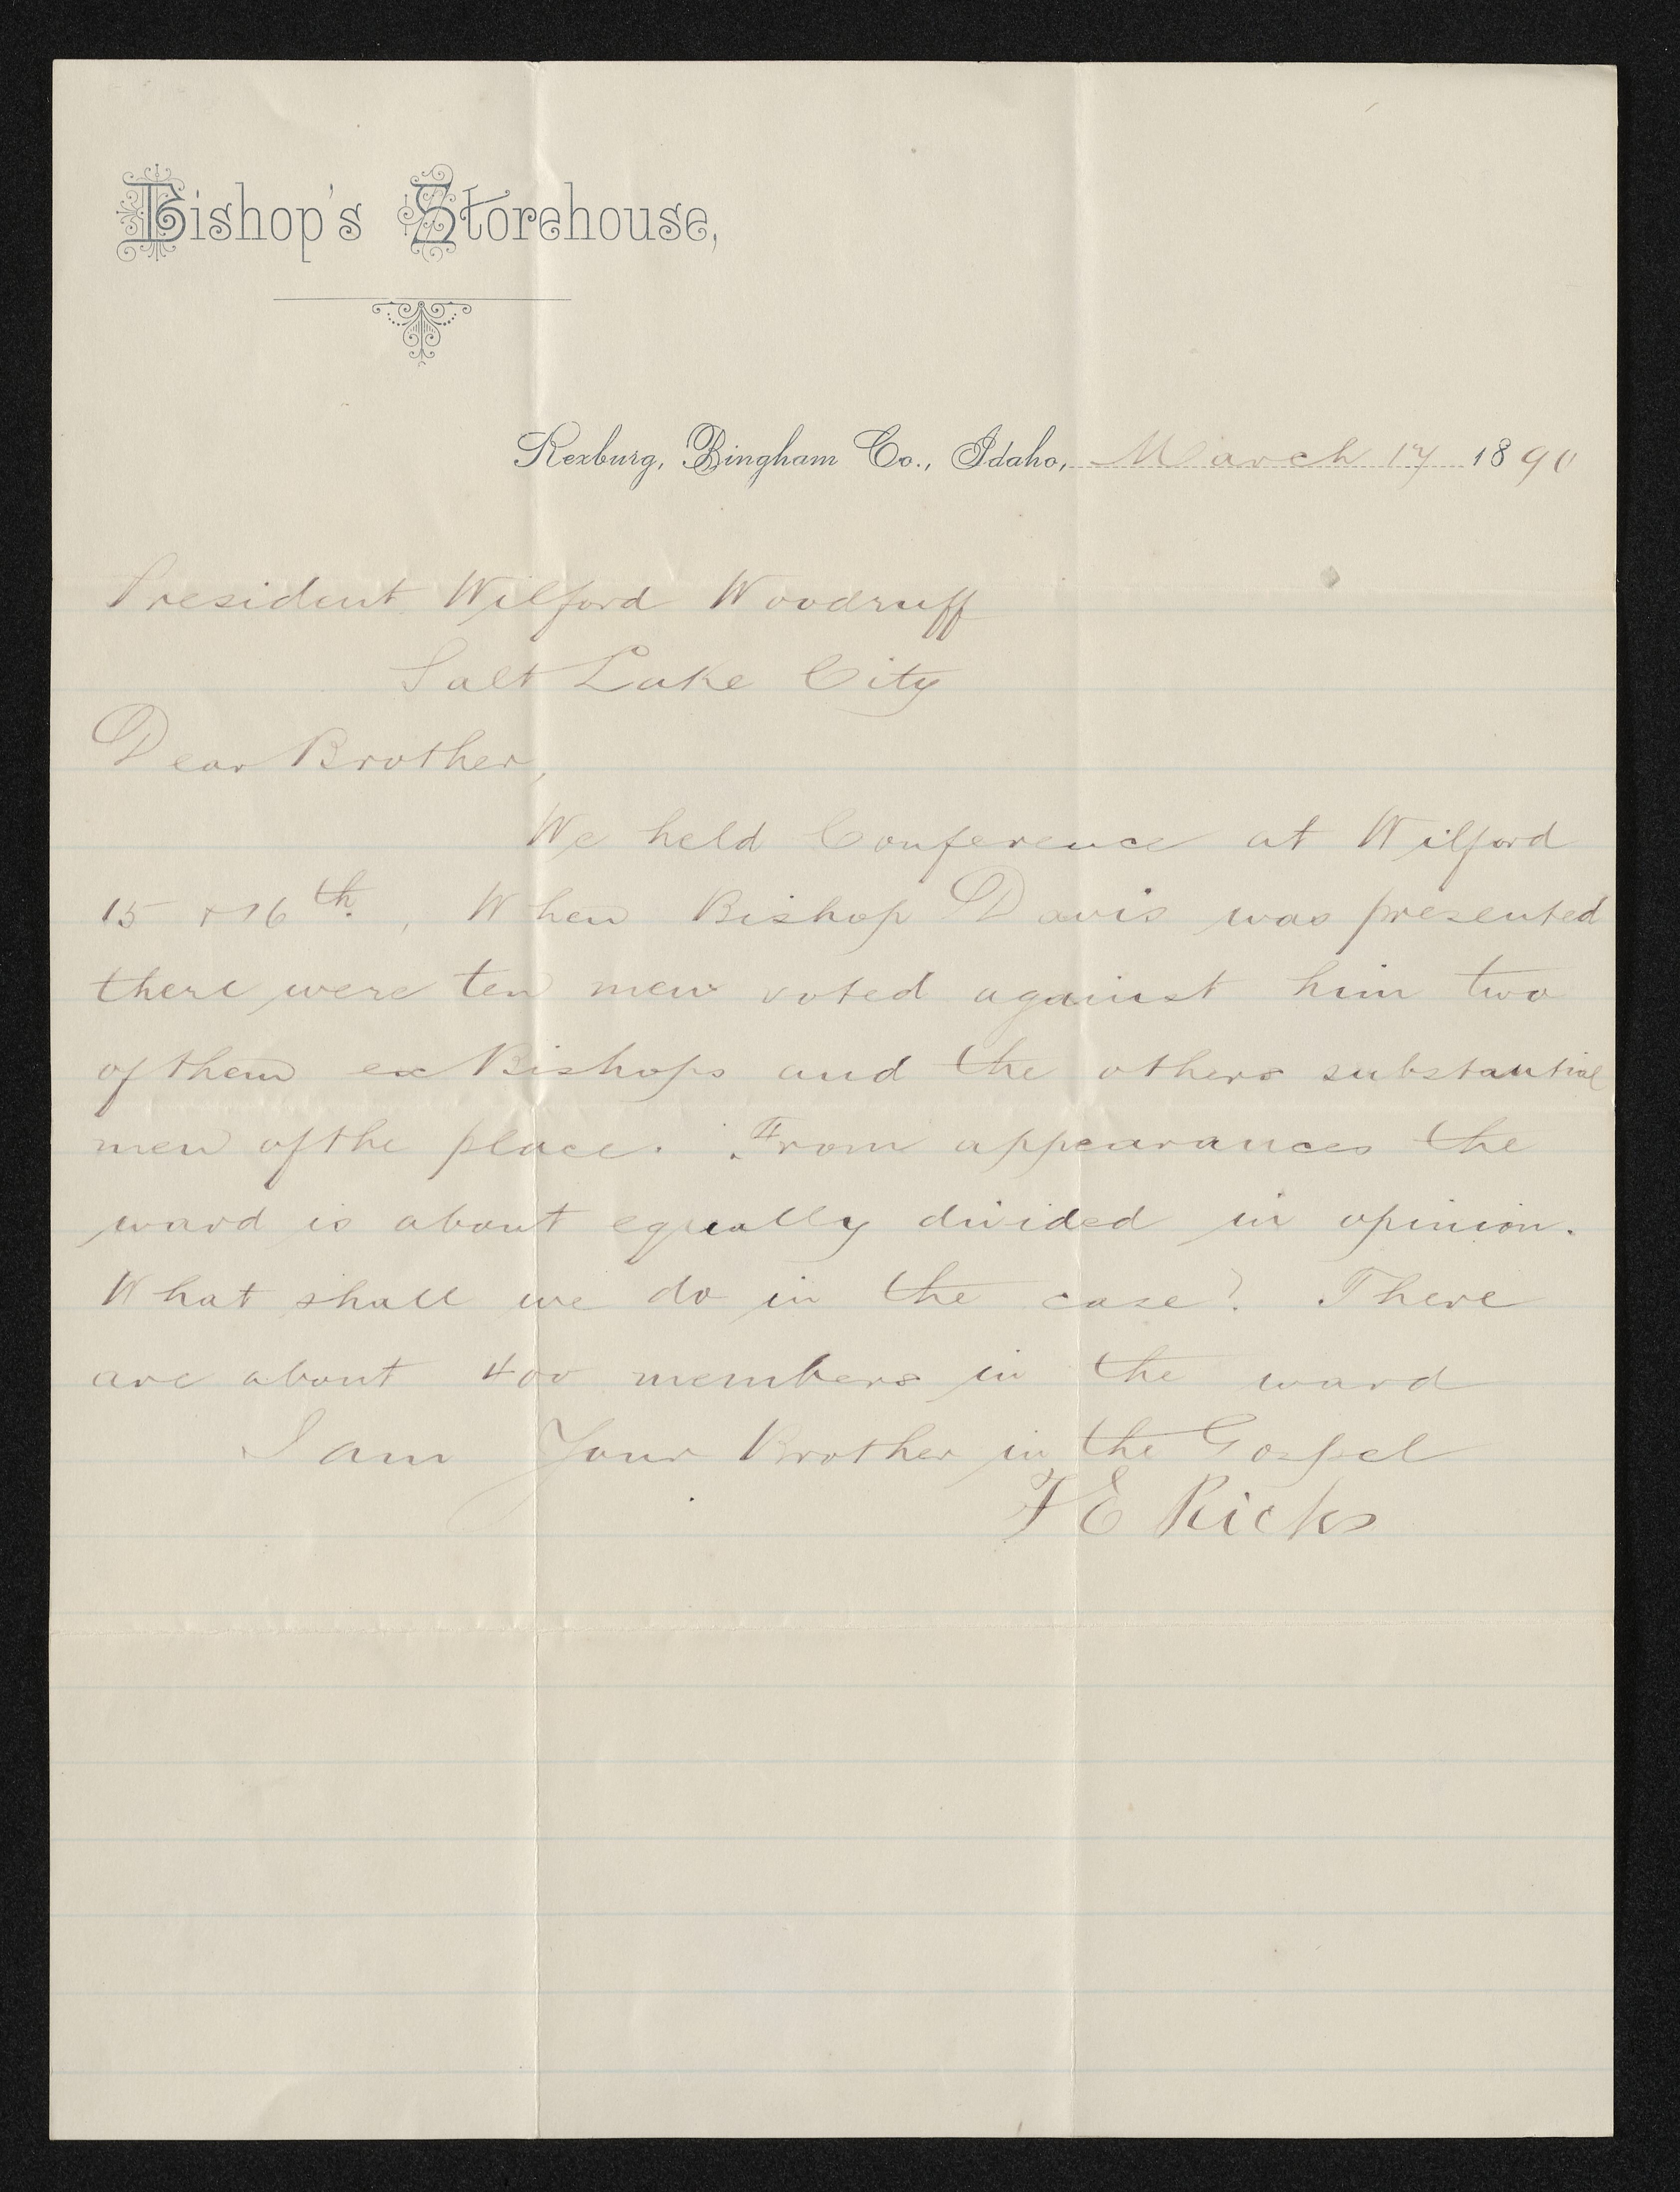 Bishop's Storehouse,
Rexburg, Bingham Co., Idaho, March 17 1890
President Wilford Woodruff
Salt Lake City
Dear Brother,
We held Conference at Wilford
15 & 16th. , When Bishop Davis was presented
there were ten men voted against him two
of them ex Bishops and the others substantial
men of the place. From appearances the
ward is about equally divided in opinion.
What shall we do in the case? There
are about 400 members in the ward
I am Your Brother in the Gospel
T E Ricks